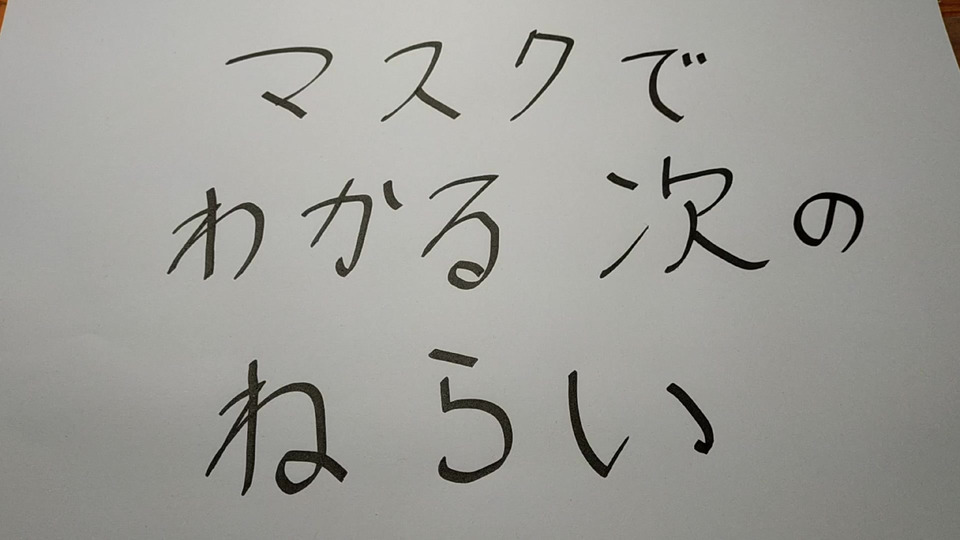 マスクで
わかる次の
ねらい